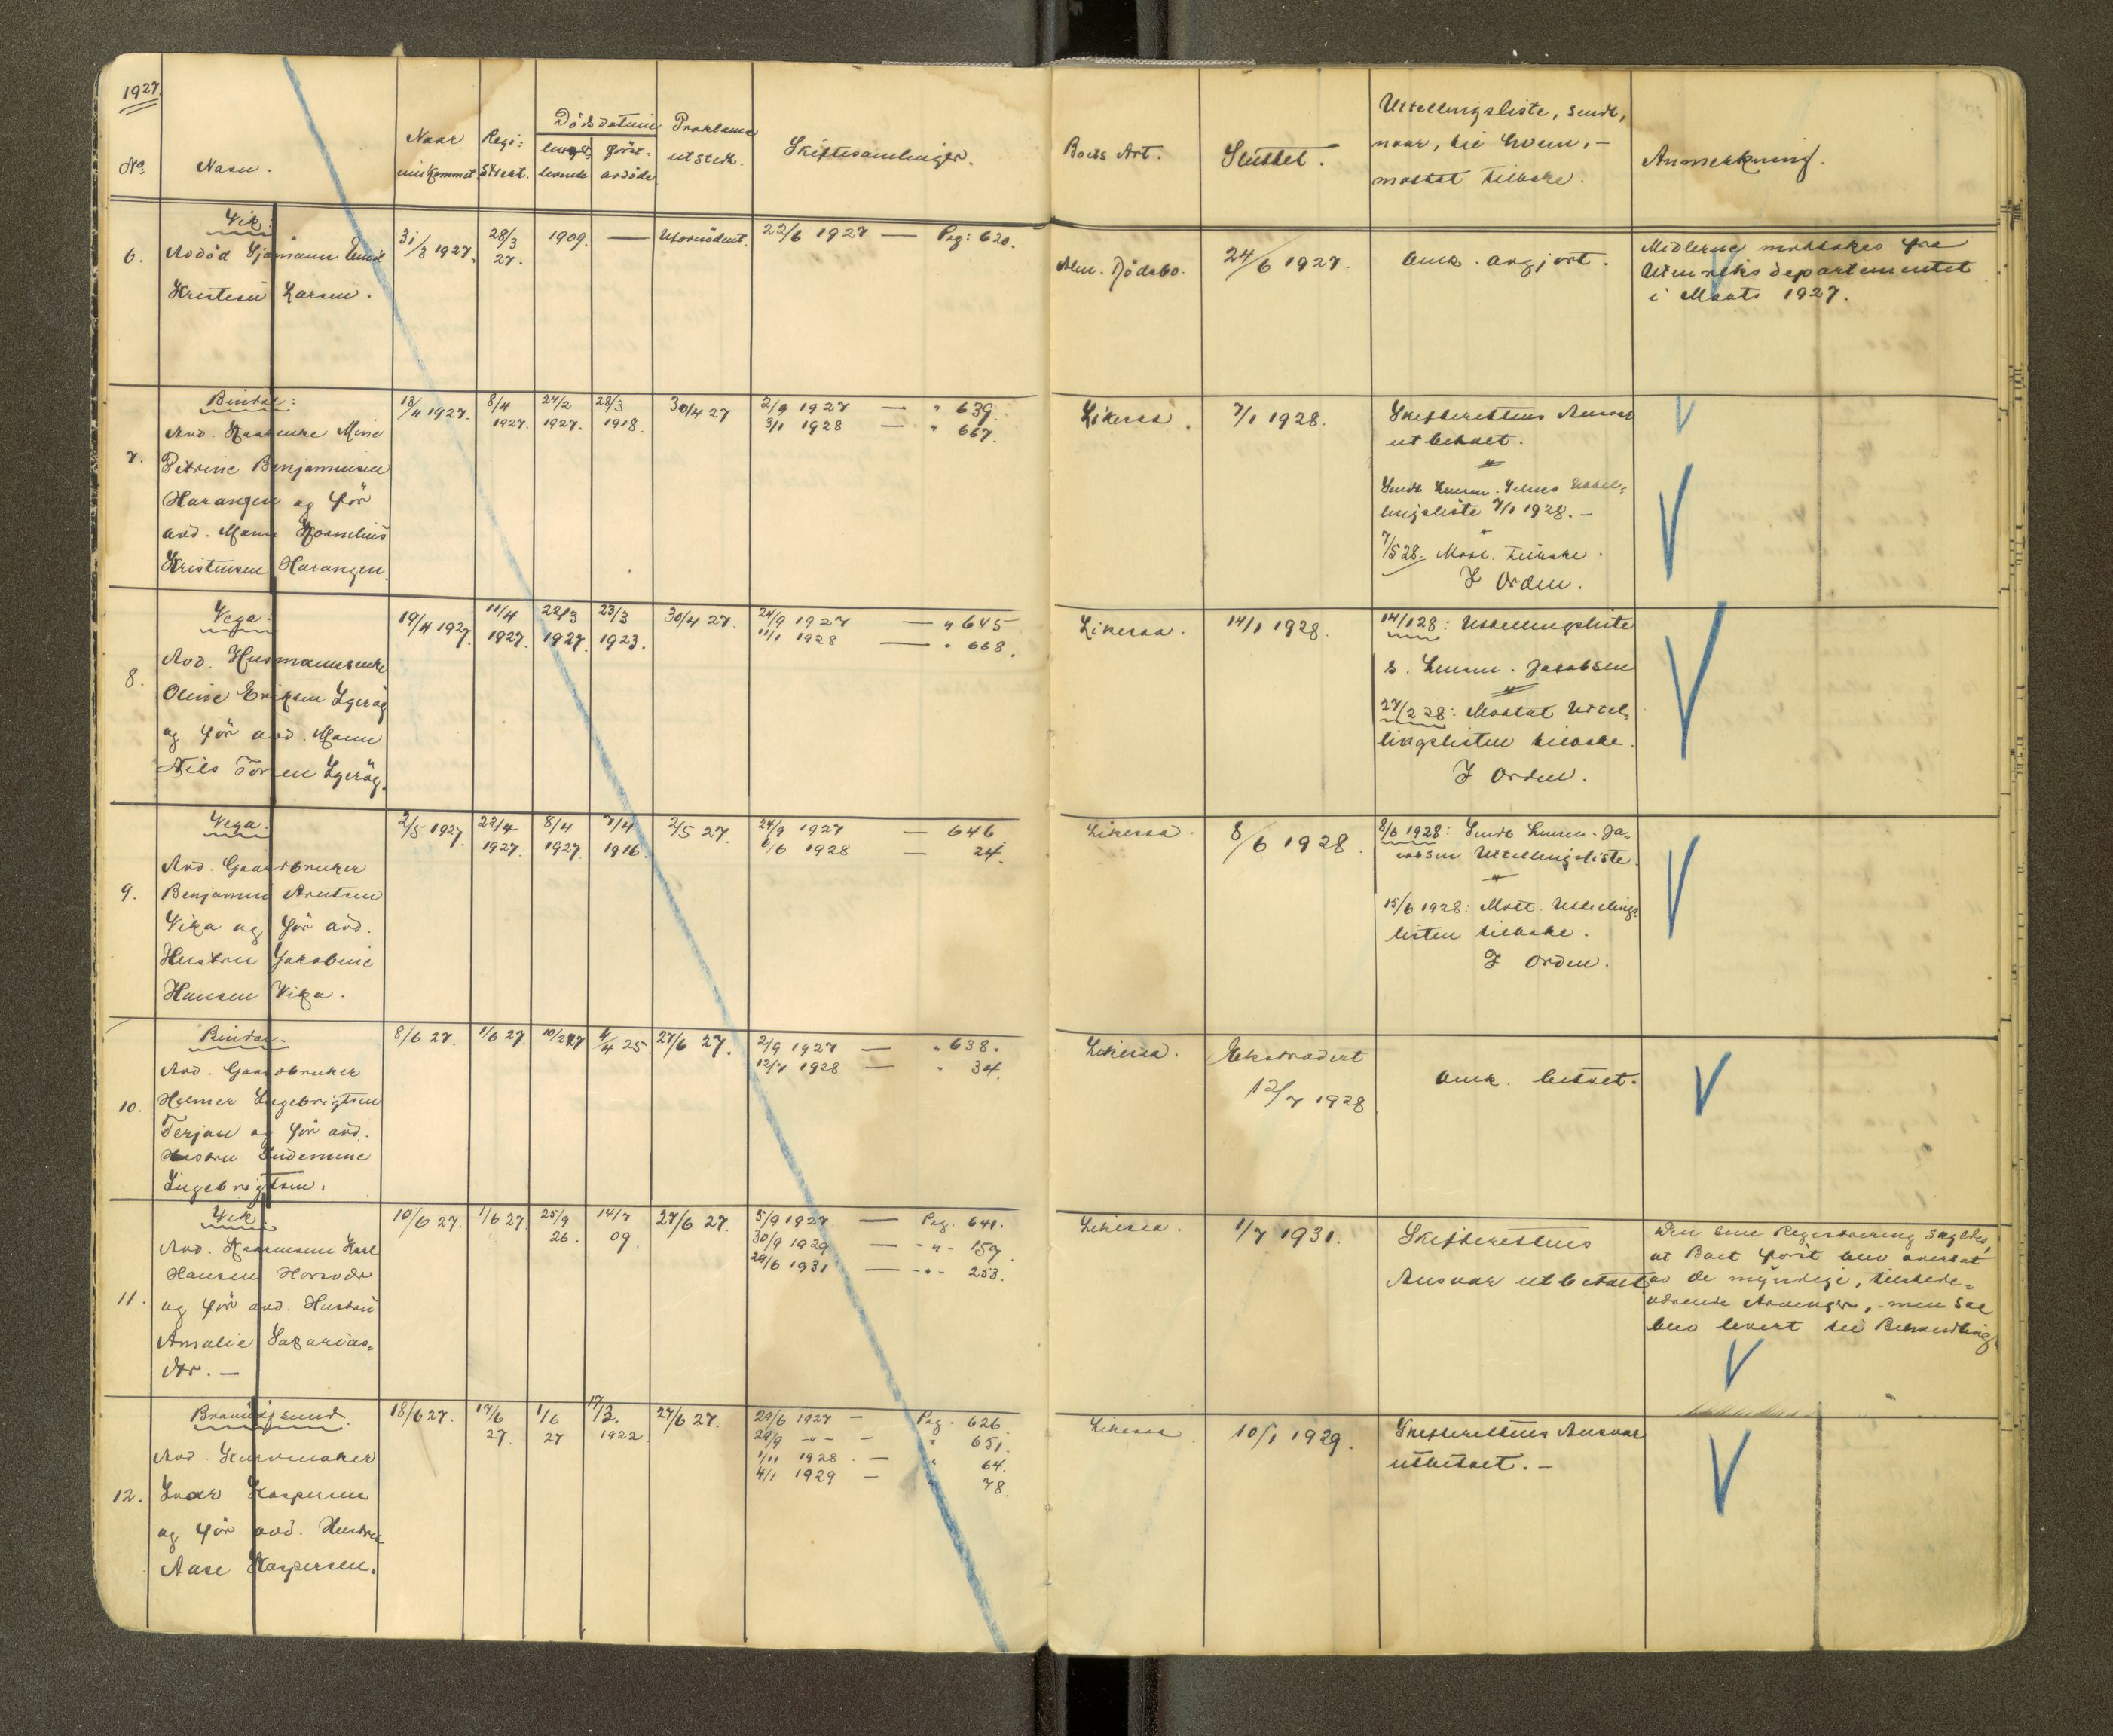 1927.
No.
Navn.
Naar
innkommet
Regi-
strert.
Dödsdatum
lengst-
levende
först-
avdöde
Proklama
utstedt.
Skiftesamlinger.
Boets Art.
Sluttet.
Utdelingsliste, sendt,
naar, til hvem, -
mottat tilbake.
Anmerkning.
6.
Vik:
Avdöd Sjömann Emil
Kristian Larsen.
31/3 1927.
28/3
27.
1909.
—
Ufornödent.
22/6 1927 — Pag: 620.
Alm. Dödsbo.
24/6 1927.
Omk. avgjort.
Midlerne mottokes fra
Utenriksdepartementet
i Marts 1927.
7.
Bindal:
Avd. Kaarenke Mine
Petrine Benjaminsen
Harangen og för
avd. Mann Kornelius
Kristensen Harangen.
13/4 1927.
8/4
1927.
24/2
1927.
28/3
1918.
30/4 27
2/9 1927 — " 639.
3/1 1928 — " 667.
Likesaa.
7/1 1928.
Skifterettens Ansvar
utbetalt.
"
Sendt Lensm. utdel-
lingsliste 7/1 1928. -
"
7/5 28. Mott. tilbake.
I Orden.
8.
Vega.
Avd. Husmannsenke
Oline Eriksen Igeröy
og för avd. Mann
Nils Torsen Igeröy.
19/4 1927.
11/4
1927.
22/3
1927.
23/3
1923.
30/4 27.
24/9 1927 — " 645
11/1 1928 — " 668.
Likesaa.
14/1 1928.
14/1 28: Utdellingsliste
s. Lensm. Jakobsen
"
27/2 28: Mottat Utdel-
lingslisten tilbake.
I Orden.
9.
Vega.
Avd. Gaardbruker
Benjamin Arntsen
Vika og för avd.
Hustru Jakobine
Hansen Vika.
2/5 1927.
22/4
1927.
8/4
1927.
7/4
1916.
2/5 27.
24/9 1927 — 646
6/6 1928 — 24.
Likesaa.
8/6 1928.
8/6 1928: Sendt Lensm. Ja-
kobsen Utdellingsliste.
"
15/6 1928: Mott. Utdelings-
listen tilbake.
I Orden.
10.
Bindal.
Avd. Gaardbruker
Helmer Ingebrigtsen
Terjan og för avd.
Hustru Indemine
Ingebrigtsen.
8/6 27.
1/6 27.
10/2 27
4/4 25.
27/6 27.
2/9 1927 — " 638.
12/7 1928 — " 34.
Likesaa.
Ekstradert
12/7 1928
Omk. betalt.
11.
Vik.
Avd. Kaarmann Karl
Hansen Horsvdr
og för avd. Hustru
Amalie Sakarias-
dtr. -
10/6 27.
1/6 27.
25/9
26.
14/7
09.
27/6 27.
5/9 1927 — Pag. 641.
30/9 1929 — - " - 159.
29/6 1931 — - " - 253.
Likesaa.
1/7 1931.
Skifterettens
Ansvar utbetalt
Den ene Registrering sagdes,
at Boet först blev overtat
av de myndige, tilstede-
værende Arvinger, - men saa
blev levert til Behandling.
12.
Brönnöysund.
Avd. Kurvmaker
Ivar Kaspersen
og för avd. Hustru
Aase Kaspersen.
18/6 27.
17/6
27.
1/6
27
17/3.
1922.
27/6 27.
29/6 1927 — Pag. 626
29/9 - " - — " 651.
1/11 1928. — " 64.
4/1 1929 — " 78.
Likesaa.
10/1 1929.
Skifterettens Ansvar
utbetalt. -